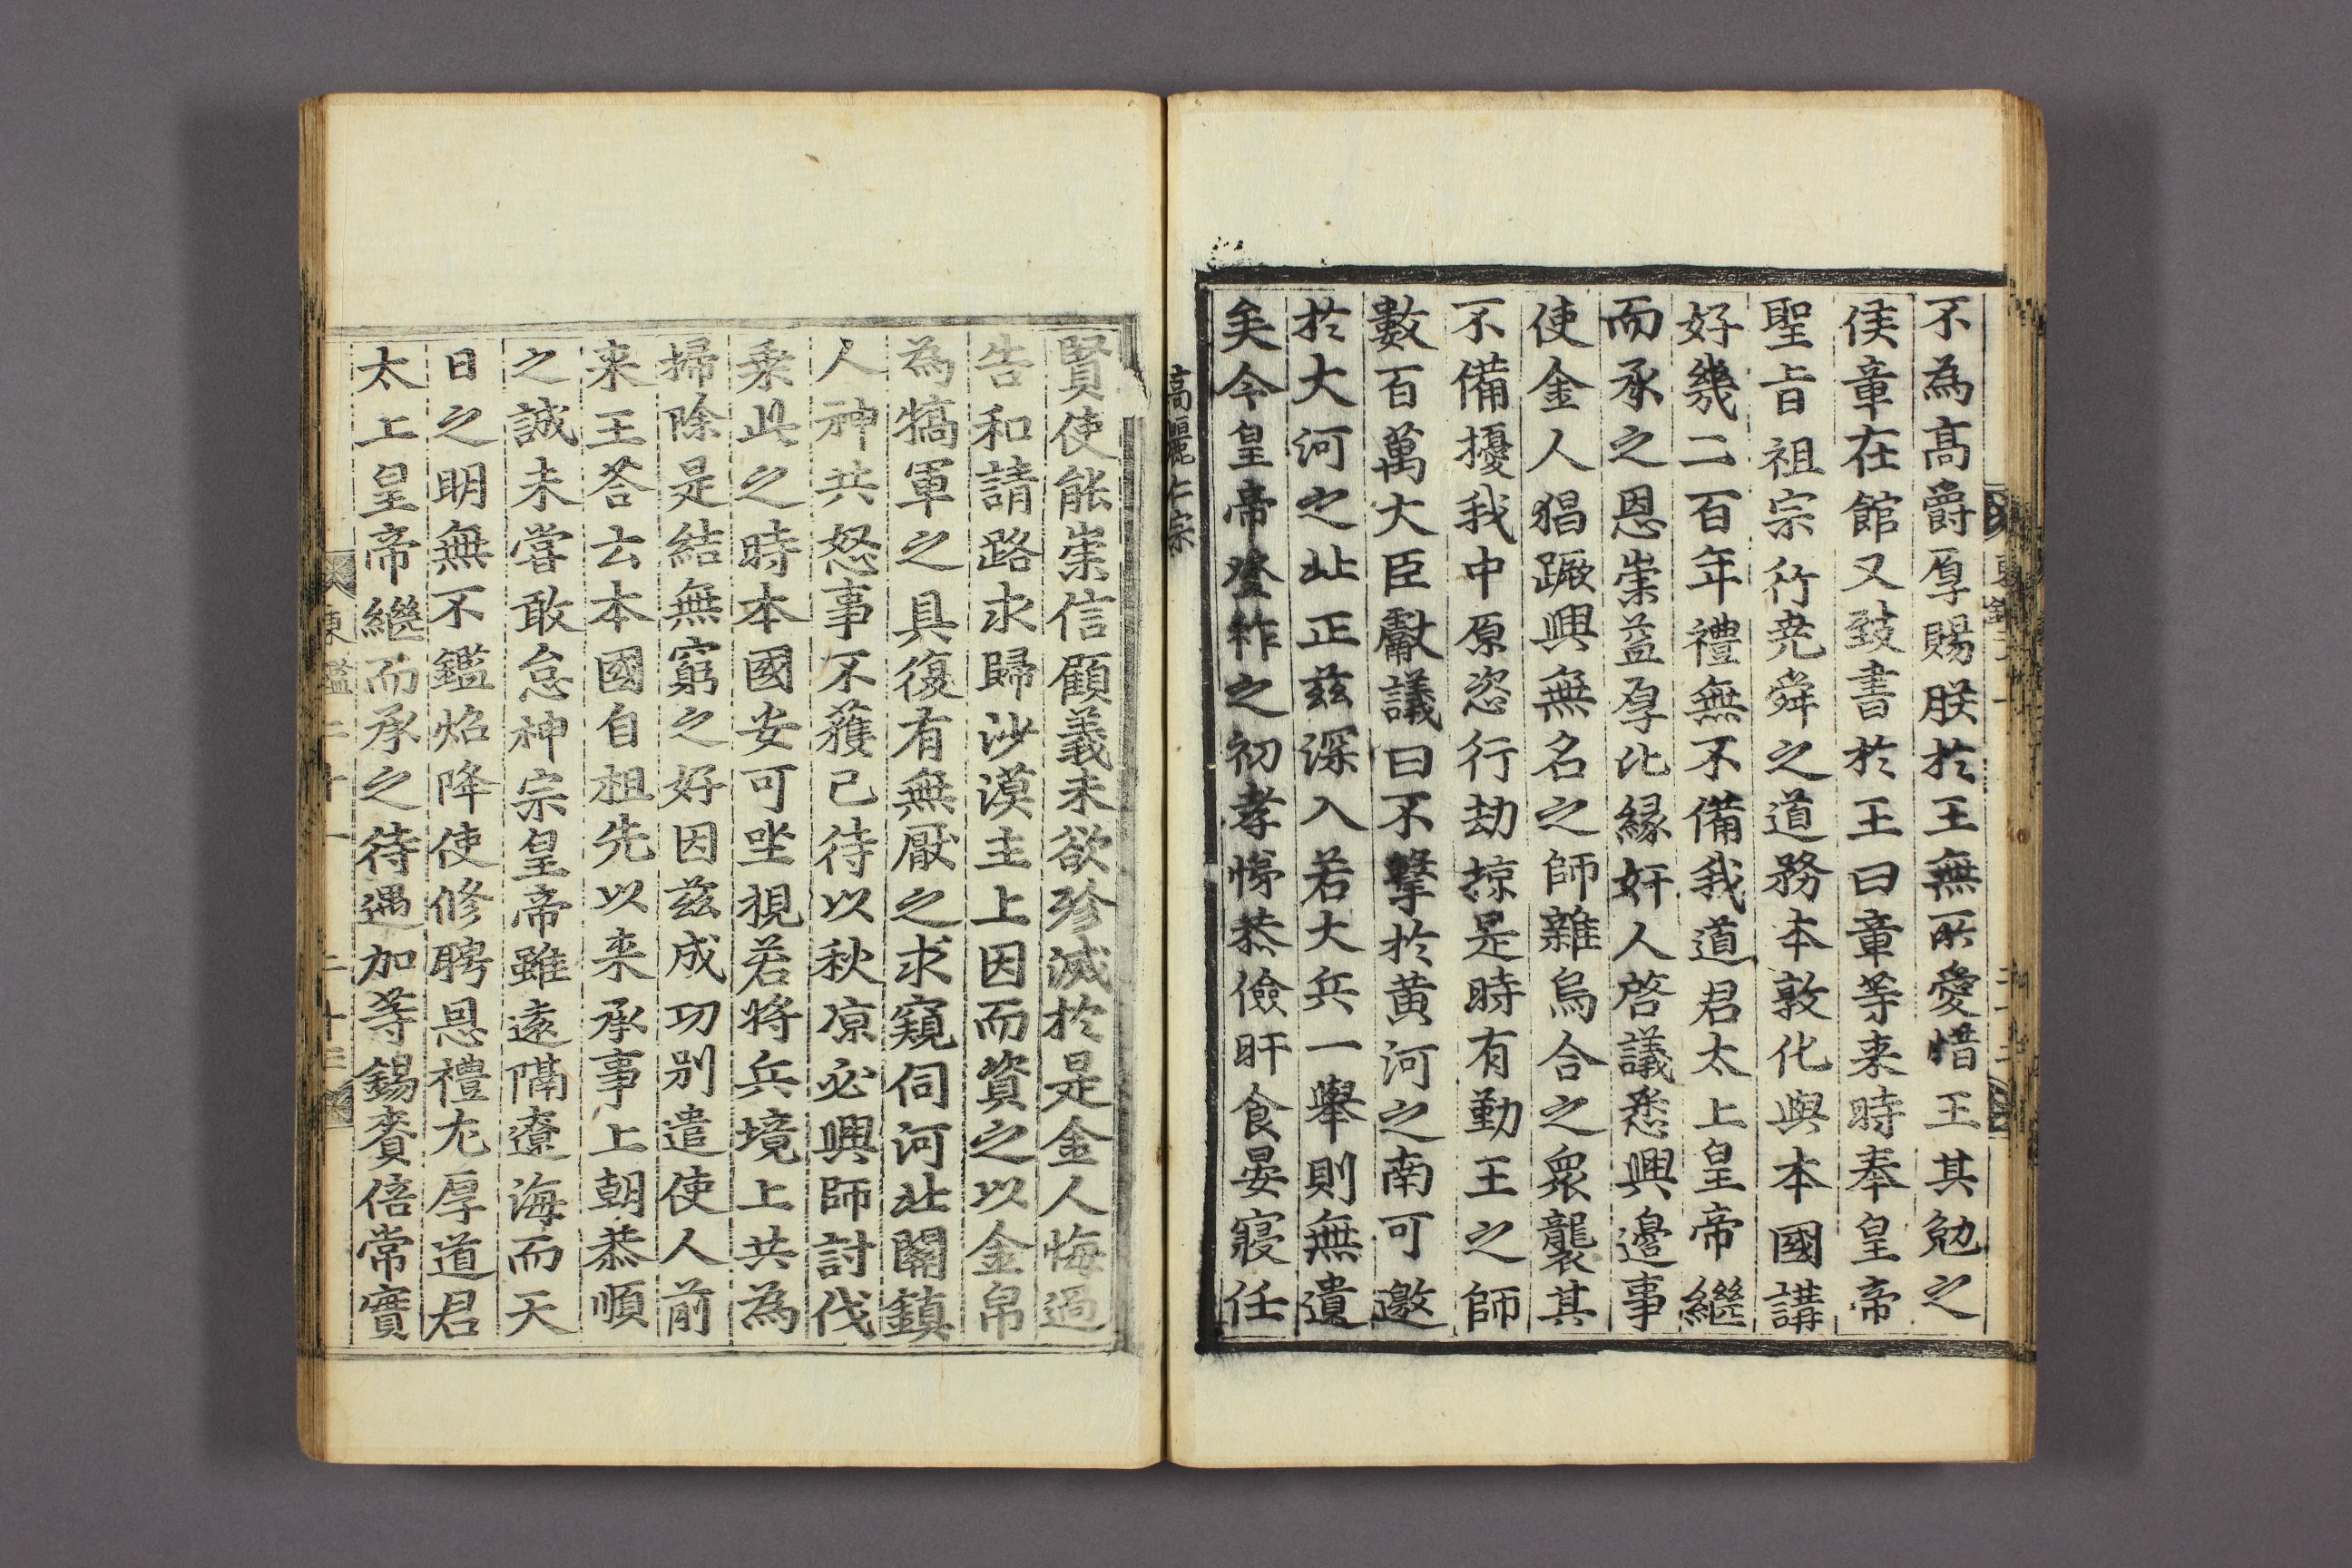 不為高爵厚賜朕於王無所愛惜王其勉之
侯章在館又致書於王曰章等来時奉皇帝
聖旨祖宗行堯舜之道務本敦化與本國講
好幾二百年禮無不備我道君太上皇帝繼
而承之恩崇益厚比縁奸人啓議悉興邉事
使金人猖蹶興無名之師雜烏合之衆襲其
不備擾我中原恣行劫掠是時有勤王之師
數百萬大臣獻議曰不擊於黄河之南可邀
於大河之北正兹深入若大兵一舉則無遺
矣今皇帝登祚之初孝悌恭儉旰食晏寢任
高麗仁宗
賢使能崇信顧義未欲殄滅於是金人悔過
告和請路求歸沙漠主上因而資之以金帛
為犒軍之具復有無厭之求窺伺河北關鎮
人神共怒事不獲已待以秋凉必興師討伐
乗此之時本國安可坐視若将兵境上共為
掃除是結無窮之好因兹成功别遣使人前
来王荅云本國自祖先以来承事上朝恭順
之誠未嘗敢怠神宗皇帝雖逺隔遼海而天
日之明無不鑑炤降使修聘恩禮尤厚道君
太上皇帝繼而承之待遇加等錫賚倍常實
東鑑二十一 二十三